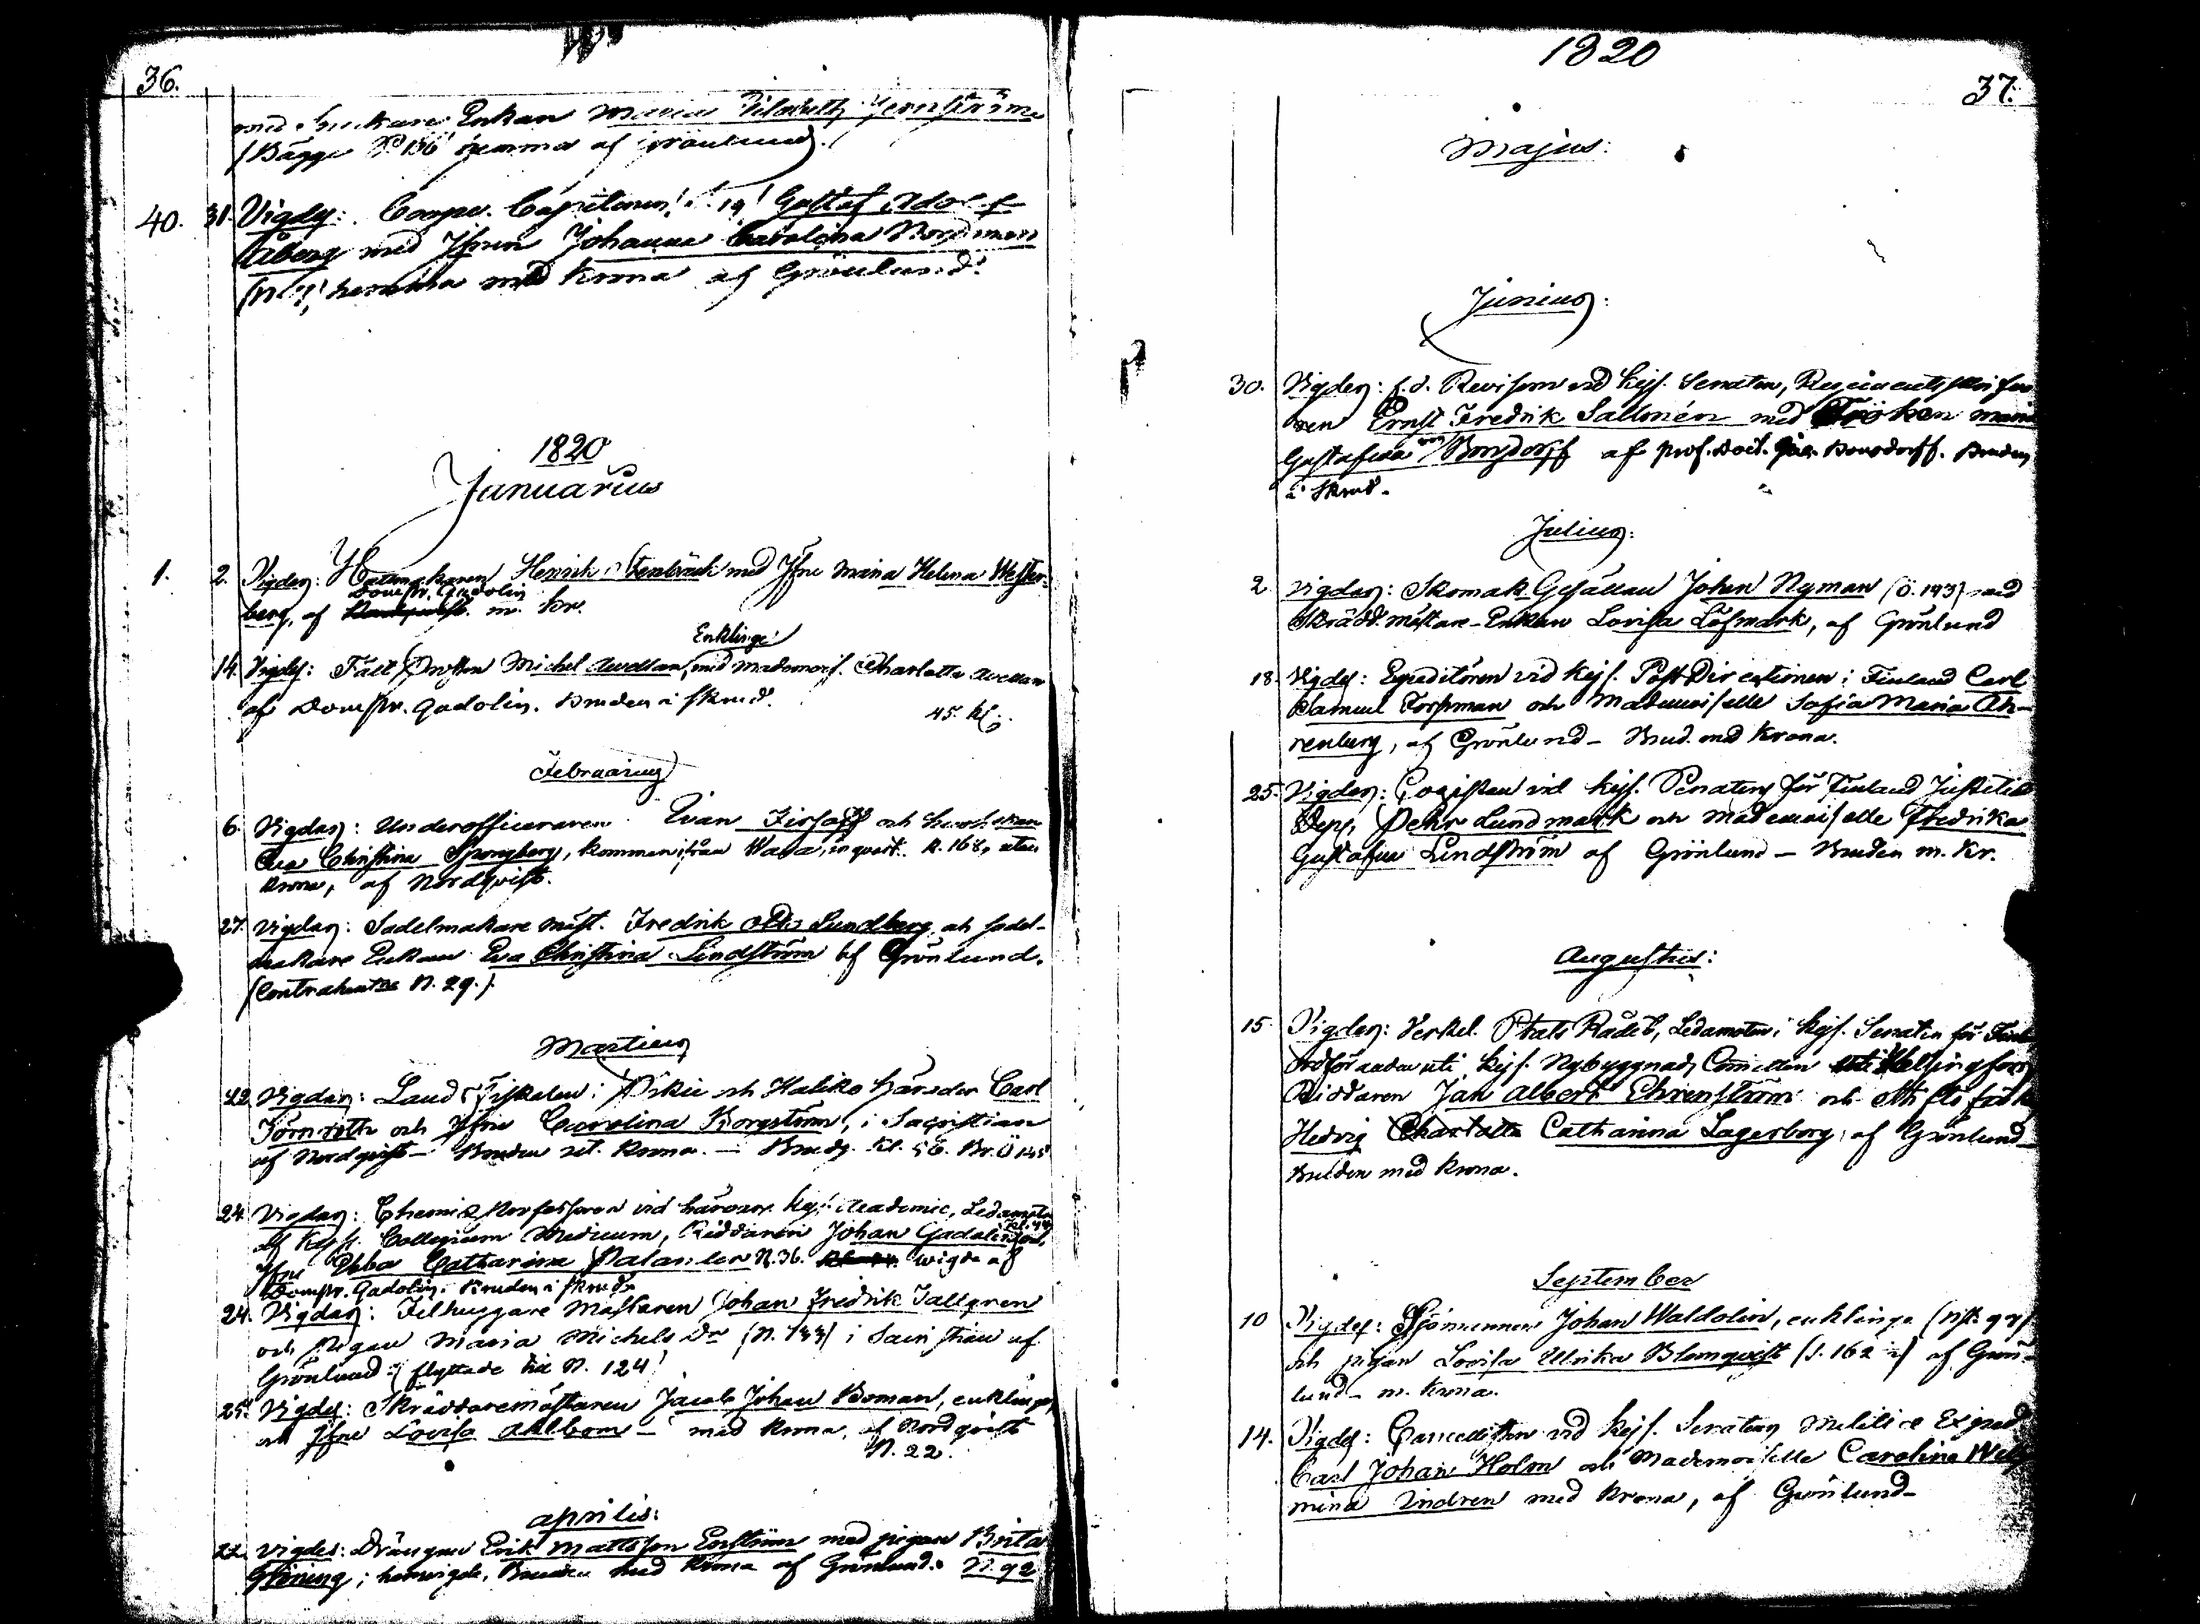 36.
med Enkan Maria Jernström
(Bägge No 136 hemma af Grönlund).
40. 31. Vigdes: Gustaf Adolf
Åberg med Jfrun Johanna Carolina Nordman
hemma med Krona af Grönlund.
1820
Januarius
1. 2. Vigdes: Hattmakaren Henrik Stenbäck med Jfru Maria Helena Wester-
Dompr. Gadolin
berg, af m. Kr.
Enklinge
14. Vigdes: Fält Michel Avellan, med Mademois. Charlotta Avellan
af Dompr. Gadolin. Bruden i skrud.
45. Kl.
Februarius
6. Vigdes: Underofficeraren Ivan Firsoff och
Eva Christina Spongberg, kommen ifrån Wasa, in quart. K. 168, utan
krona, af Nordqvist.
27. Vigdes: Sadelmakare mäst. Fredrik Otto Lundberg och sadel-
makare Enkan Eva Christina Lindström af Grönlund.
(Contrahenterne N. 29.)
Martius
12. Vigdes: Lands Fiskalen i Pikie och Haliko Härader Carl
Törnroth och Jfru Carolina Borgström, i Sacristian
af Nordqvist – Bruden ut. Krona. – Brudg. Kl. 56. Br. Ö 145
24. Vigdes: Chemiæ Professoren vid härvar. Kejs. Academie, Ledamoten
af Kejs. Collegium Medicum, Riddaren Johan Gadolin och
Jfru Ebba Catharina Palander N. 36. wigde af
Dompr. Gadolin. Bruden i skrud.
24. Vigdes: Filhuggare Mästaren Johan Fredrik Tallgren
och Pigan Maria Michels Dr (N. 133) i Sacristian af
Grönlund: (flyttade till N. 124)
25. Vigdes: Skräddaremästaren Jacob Johan Boman, enklinge,
och Jfru Lovisa Ahlbom – med krona, af Nordqvist
N. 22.
Aprilis:
22. Vigdes: Drängen Erik Mattsson Enström med pigan Brita
Gröning; hemvigde, Bruden med Krona af Grönlund. N. 92
1820
37.
Majus:
Junius:
30. Vigdes: f.d. Revisorn vid Kejs. Senaten, Regements
ren Ernst Fredrik Sallmén med Fröken Maria
Gustafva von Bonsdorff af prof. Doct. Bonsdorff. Bruden
i skrud.
Julius:
2. Vigdes: Skomak. Gesällen Johan Nyman (Ö. 143) med
Skrädd. mästare-Enkan Lovisa Löfmark, af Grönlund
18. Vigdes: Expeditören vid Kejs. Post Directionen i Finland Carl
Samuel Forsman och Mademoiselle Sofia Maria Ah-
renberg, af Grönlund – Brud. med Krona.
25. Vigdes: Copisten vid Kejs. Senatens för Finland Justitiæ
Dep. Pehr Lundmark och Mademoiselle Fredrika
Gustafva Lindström af Grönlund – Bruden m. Kr.
Augustus:
15. Vigdes: Verkel. Stats Rådet, Ledamoten i Kejs. Senaten för Finl.
Ordföranden uti Kejs. Nybyggnads Comiteen uti Helsingfors
Riddaren Jan Albert Ehrenström och Stiftsfröken
Hedvig Charlotta Catharina Lagerborg, af Grönlund –
Bruden med krona.
September
10 Vigdes: Sjömannen Johan Waldolin, enklinge
och pigan Lovisa Ulrika Blomqvist (S. 162 af Grön-
lund – m. krona.
14. Vigdes: Cancellisten vid Kejs. Senatens Militie Exped.
Carl Johan Holm och Mademoiselle Carolina Wilhel
mina Indren med krona, af Grönlund –